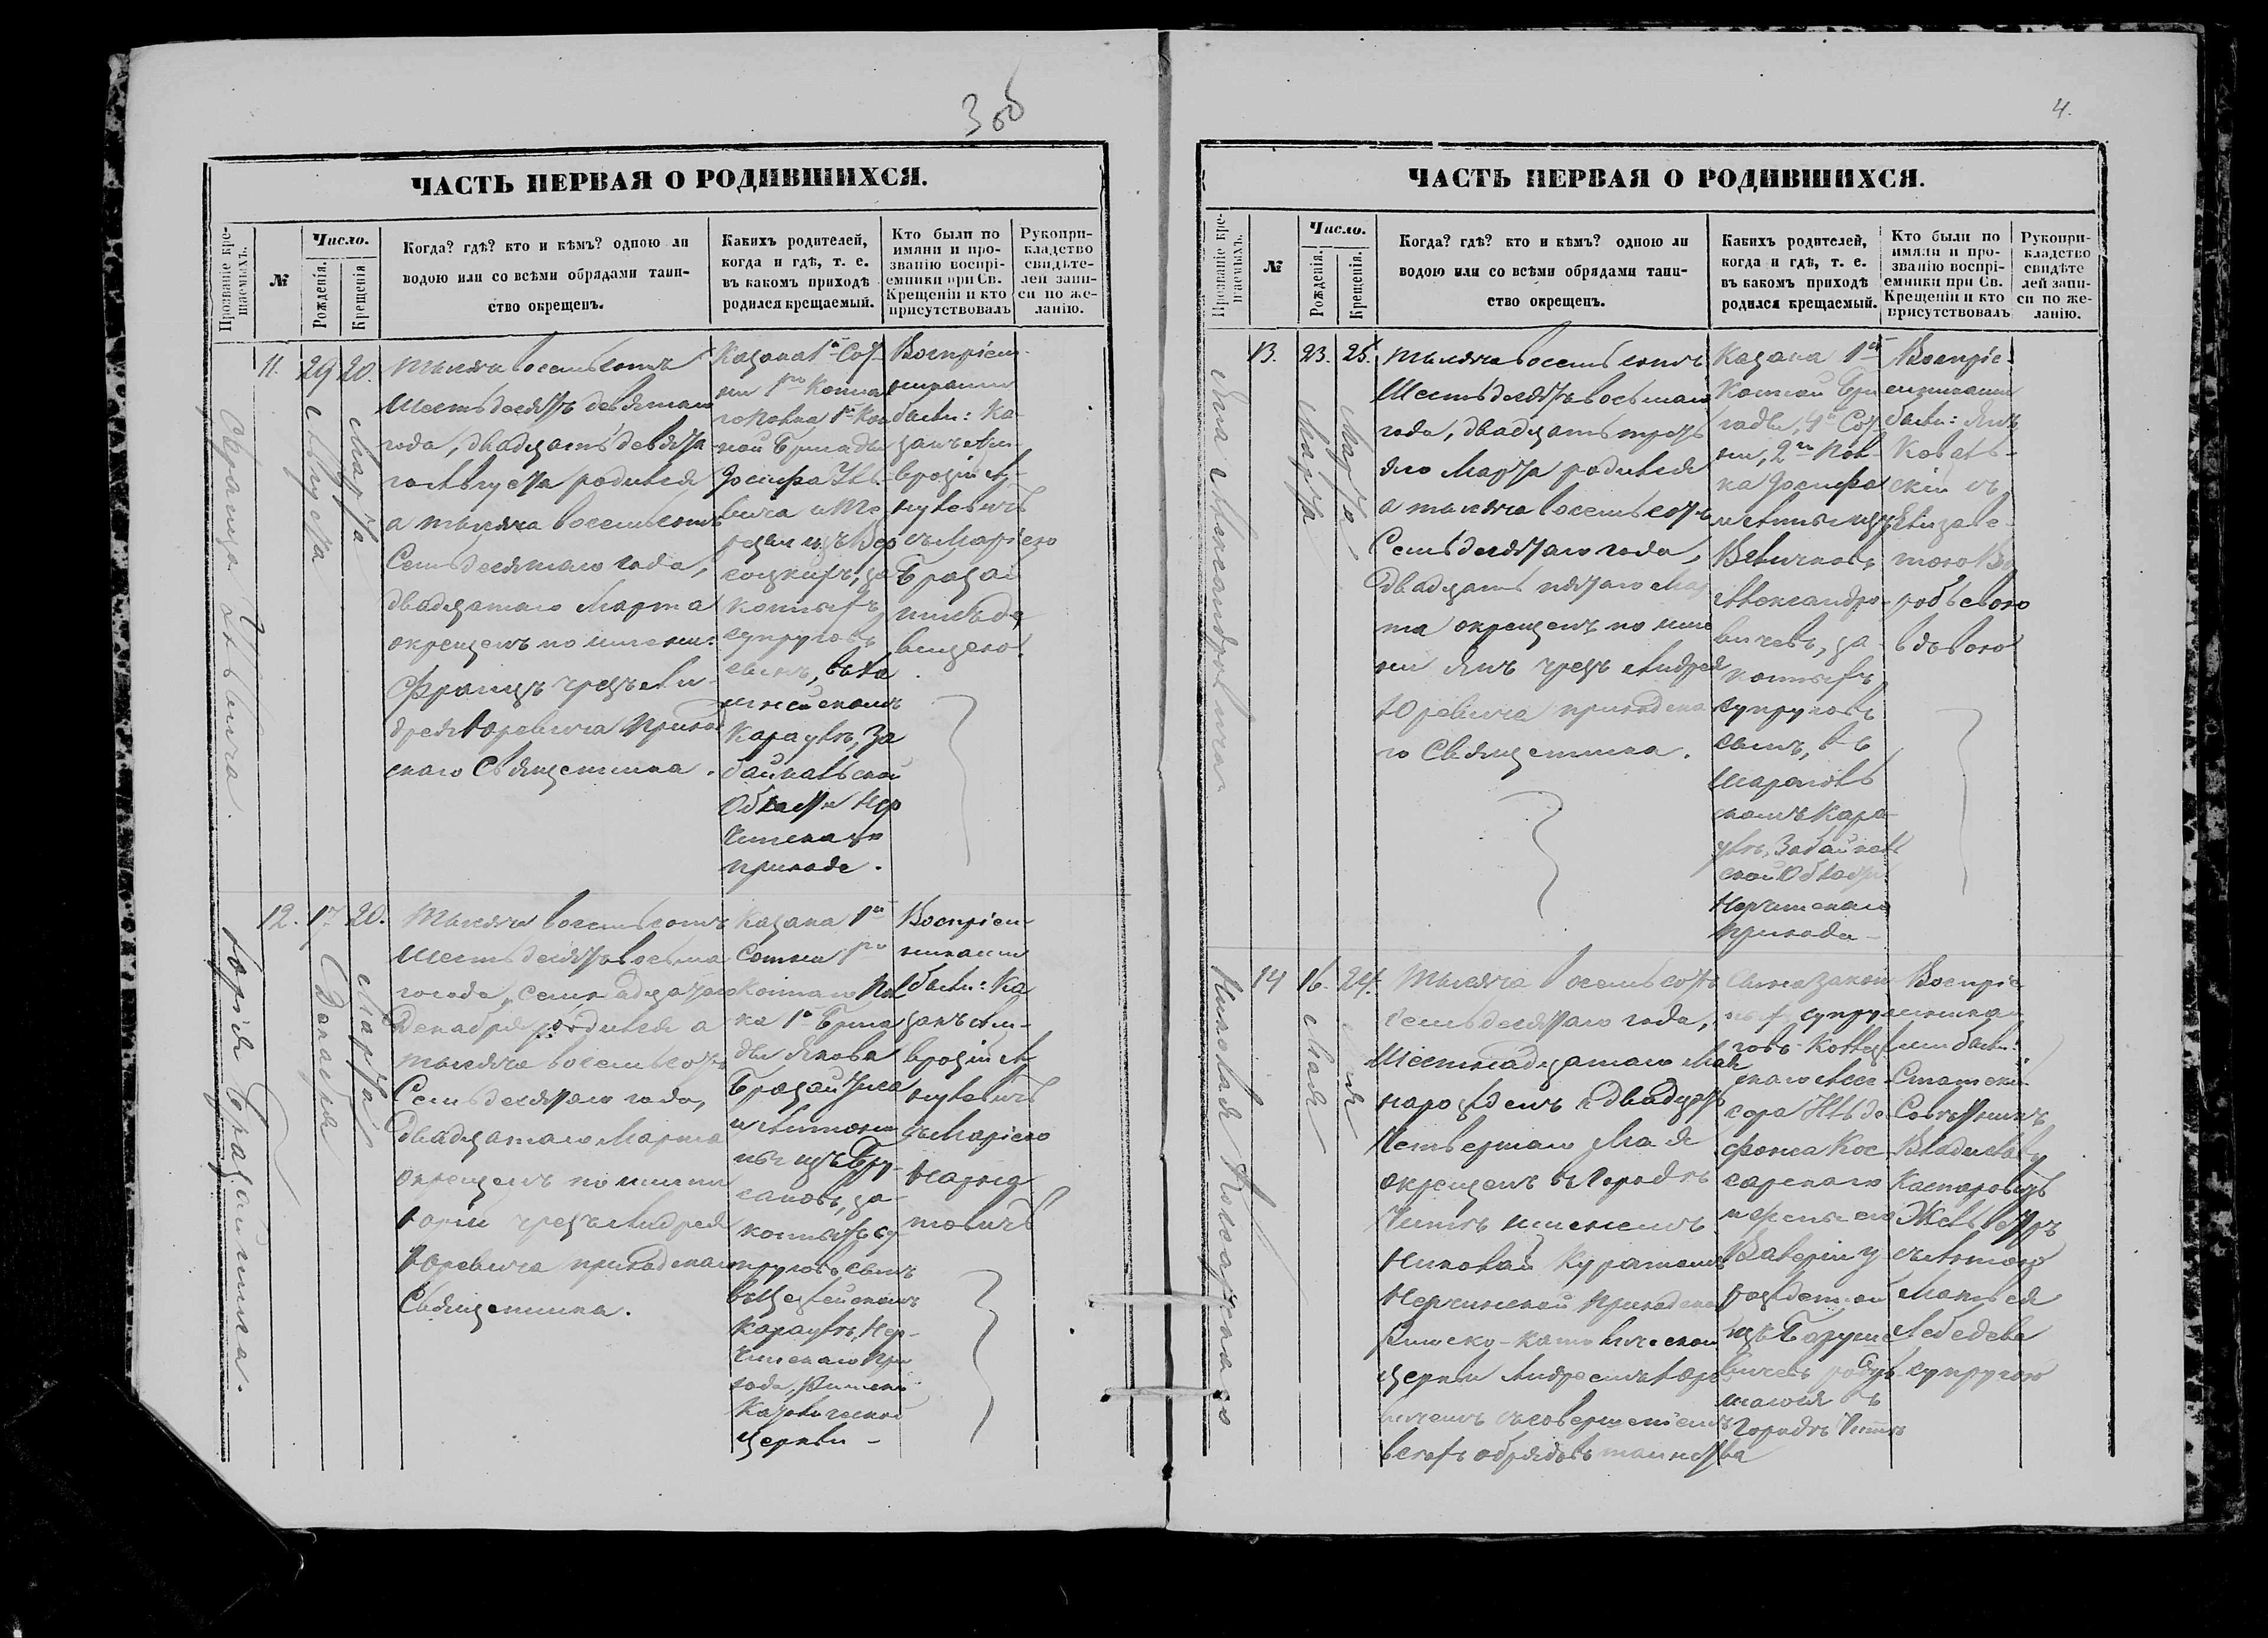 3 об
ЧАСТЬ ПЕРВАЯ О РОДИВШИХСЯ.
Прозваніе кре-
щаемыхъ.
№
Число.
Рожденія.
Крещенія
Когда? гдѣ? кто и кѣмъ? одною ли
водою или со всѣми обрядами таин-
ство окрещенъ.
Какихъ родителей,
когда и гдѣ, т. е.
въ какомъ приходѣ
родился крещаемый.
Кто были по
имяни и про-
званію воспрі-
емники при Св.
Крещеніи и кто
присутствовалъ
Рукопри-
кладство
свидѣте-
лей запи-
си по же-
ланію.
Франца Ильвича.
11.
29 Августа
20. Марта
Тысяча восемьсотъ
Шестьдесятъ девятаго
года, двадцать девята
го Августа родился
а тысяча восемьсотъ
Семьдесятаго года,
двадцатаго Марта
окрещенъ по имени:
Францъ чрезъ Ан-
дрея Юревича Приход
скаго Священника.
Казака 1й Сот
ни 1го Конна
го Полка 1й Кон
ной Бригады
Іосифа
и Те
резіи изъ
за
конныхъ
супруговъ
сынъ, въ
скомъ
Караулѣ, За
байкальской
Области Нер
чинскаго
прихода.
Воспріем-
никами
были: Ка-
закъ Ам-
вросій А
съ Маріею
Юрія Бразайтиса.
12.
17 Декабря
20. Марта
Тысяча восемьсотъ
Шестьдесятъ восьма
го года, семнадцатаго
Декабря родился а
тысяча восемьсотъ
Семьдесятаго года,
двадцатаго Марта
окрещенъ по имени
Юрій чрезъ Андрея
Юревича приходскаго
Священника.
Казака 1й
Сотни 1го
Коннаго Пол
ка 1й Брига
ды Якова
Бразайтиса
и Антони
ны изъ
за-
конныхъ су
пруговъ сынъ
Караулѣ, Нер-
чинскаго При
хода, Римско
Католической
церкви -
Воспріем-
никами
были: Ка
закъ Ам-
вросій А
съ Маріею
4.
ЧАСТЬ ПЕРВАЯ О РОДИВШИХСЯ.
Прозваніе кре-
щаемыхъ.
№
Число.
Рожденія.
Крещенія.
Когда? гдѣ? кто и кѣмъ? одною ли
водою или со всѣми обрядами таин-
ство окрещенъ.
Какихъ родителей,
когда и гдѣ, т. е.
въ какомъ приходѣ
родился крещаемый.
Кто были по
имяни и про-
званію воспрі-
емники при Св.
Крещеніи и кто
присутствовалъ
Рукопри-
кладство
свидѣте
лей запи-
си по же-
ланію.
Яна Александровича
13.
23. Марта
25. Марта
Тысяча восемьсотъ
Шестьдесятъ восьмаго
года, двадцать треть
яго Марта родился
а тысяча восемьсотъ
Семьдесятаго года,
двадцать пятаго Мар
та окрещенъ по име
ни Янъ чрезъ Андрея
Юревича приходска
го Священника.
Казака 1й
Конной Бри
гады, 4й Сот
ни, 2го Пол-
ка Іосифа
и Анны изъ
Александро-
вичевъ, за
конныхъ
супруговъ
сынъ, въ
скомъ Кара-
улѣ, Забайкаль
ской Области
Нерчинскаго
прихода -
Воспріе-
емниками
были: Янъ
Коваль-
скій съ
Елизаве-
тою Во
робьевою
вдовою
Николая Коссарскаго
14
16. Мая
24. Мая
Тысяча восемьсотъ
семьдесятаго года,
Шестнадцатаго Мая
народженъ а двадцать
Четвертаго Мая
окрещенъ въ Городѣ
Читѣ именемъ
Николай Куратомъ
Нерчинской Приходской
Римско-католической
церкви Андреемъ Юре
вичемъ съ совершеніемъ
всехъ обрядовъ таинства
Сына закон
ныхъ супру
говъ Коллеж
скаго Ассе-
сора Ильде-
фонса Кос-
сарскаго
и жены его
Валеріи у
рожденной
изъ
родив
шагося въ
Городѣ Читѣ
Воспріе
мника
ми были:
Статскій
Совѣтникъ
Владиславъ
Каспаровичъ
съ
Матвея
Лебедева
супругою